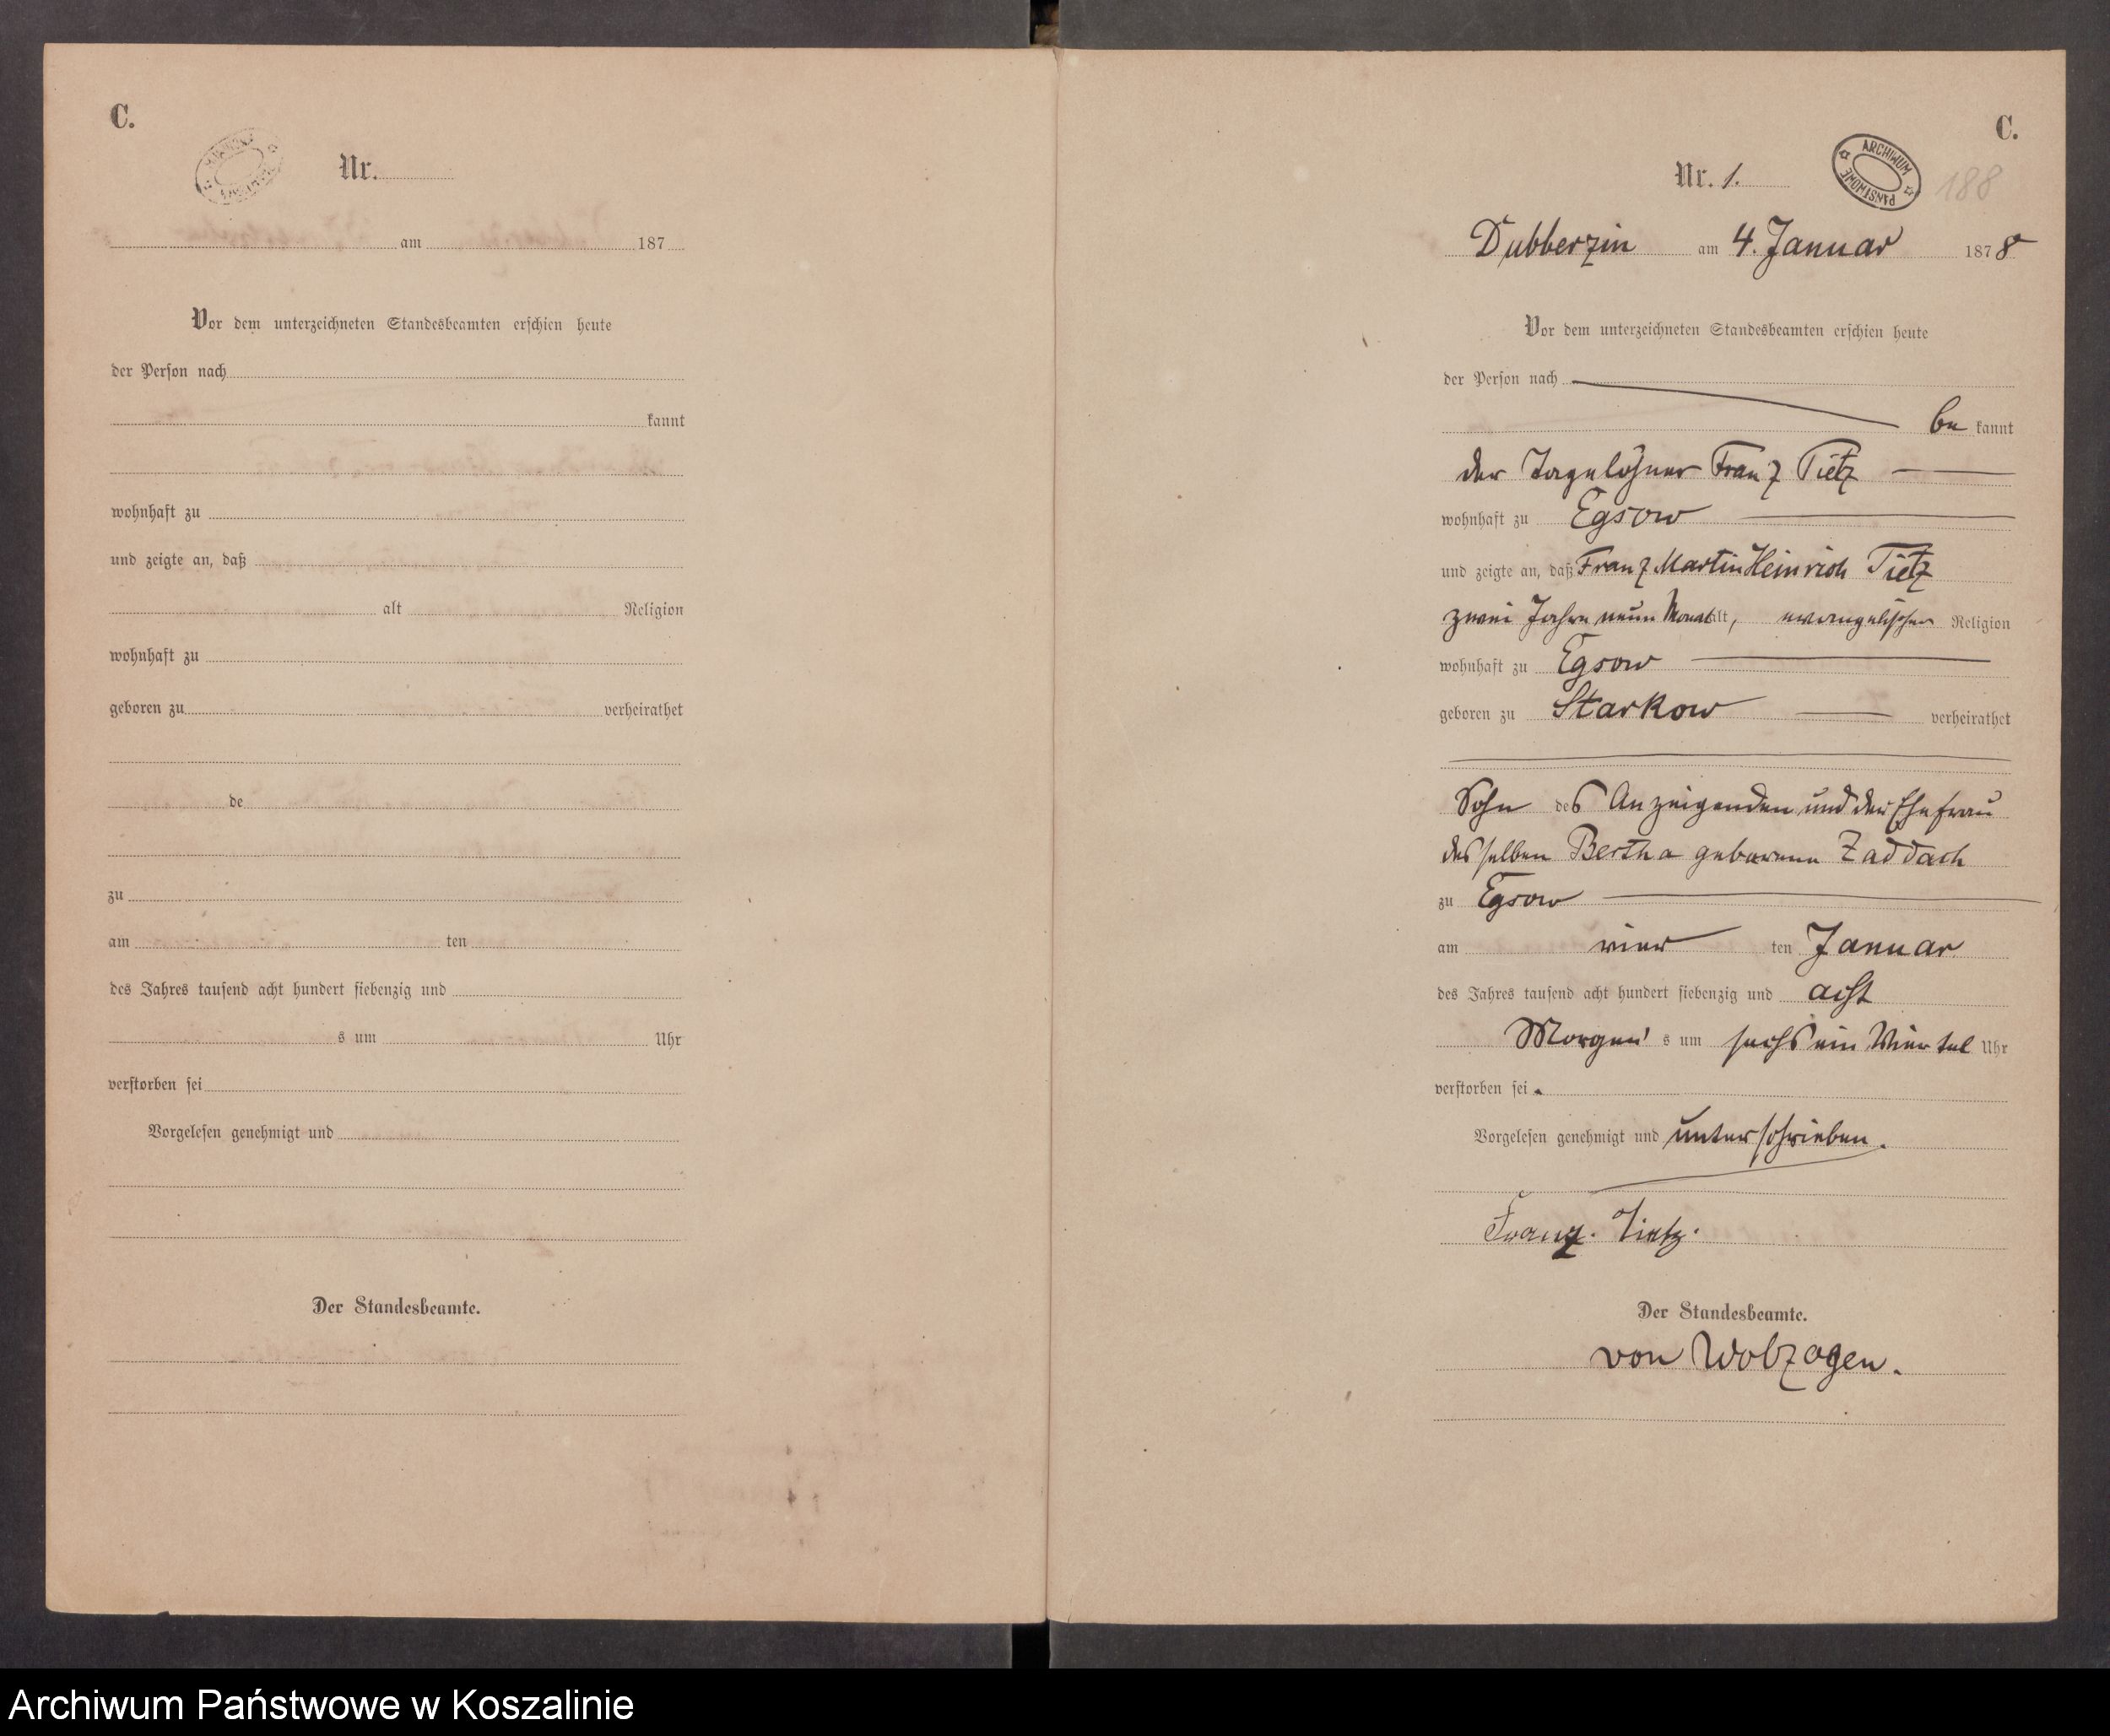 C.
Nr.
am 187
Vor dem unterzeichneten Standesbeamten erschien heute
der Person nach
kannt
wohnhaft zu
und zeigte an, daß
alt Religion
wohnhaft zu
geboren zu verheirathet
de
zu
am ten
des Jahres tausend acht hundert siebenzig und
s um Uhr
verstorben sei
Vorgelesen genehmigt und
Der Standesbeamte.
C.
Nr. 1.
ARCHIWUM PAŃSTWOWE
188
Dubberzin am 4. Januar 1878
Vor dem unterzeichneten Standesbeamten erschien heute
der Person nach
be kannt
der Tagelöhner Franz Tietz
wohnhaft zu Egsow
und zeigte an, daß Franz Martin Heinrich Tietz
zwei Jahre neun Monat alt, evangelischer Religion
wohnhaft zu Egsow
geboren zu Starkow verheirathet
Sohn des Anzeigenden und der Ehefrau
desselben Bertha geborene Zaddach
zu Egsow
am vier ten Januar
des Jahres tausend acht hundert siebenzig und acht
Morgen s um sechs ein Viertel Uhr
verstorben sei.
Vorgelesen genehmigt und unterschrieben.
Franz. Tietz.
Der Standesbeamte.
von Wolzogen.
Archiwum Państwowe w Koszalinie